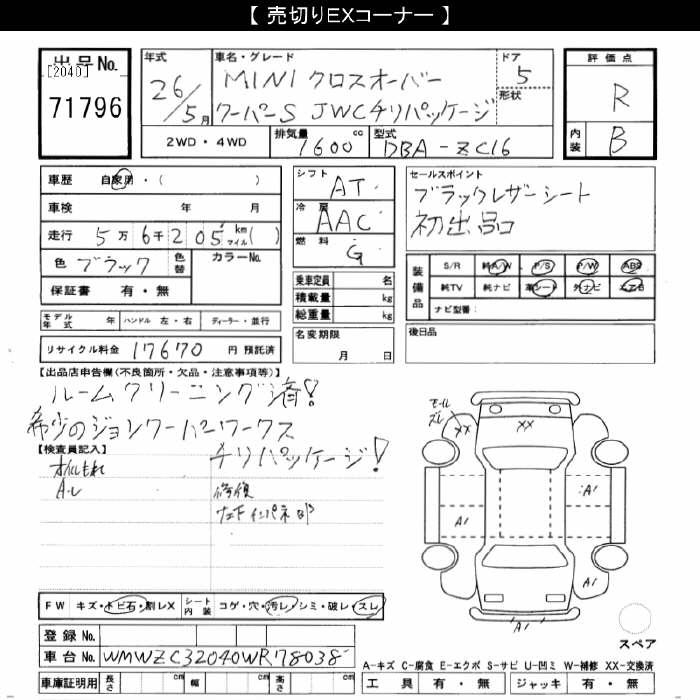 【 売切りEXコーナー 】
出品No. [2040] 71796
年式 26/5月
車名・グレード MINI クロスオーバー
クーパーS JWCチリパッケージ
ドア 5
形状
評価点 R
内装 B
2WD・4WD 排気量 1600cc 型式 DBA-ZC16
車歴 自家用・( )
車検 年 月
走行 5万6千205 km マイル( )
色 ブラック 色替 カラーNo.
保証書 有・無
シフト AT
冷房 AAC
燃料 G
乗車定員 名
積載量 kg
総重量 kg
セールスポイント
ブラックレザーシート
初出品
装備品 S/R 純A/W P/S P/W ABS
純TV 純ナビ 革シート 外ナビ エアB
ナビ型番:
モデル年式 年 ハンドル 左・右 ディーラー・並行
名変期限 月 日
後日品
リサイクル料金 17670 円 預託済
【出品店申告欄(不良箇所・欠品・注意事項等)】
ルームクリーニング済!
希少のジョンクーパーワークス
チリパッケージ!
【検査員記入】
オイルもれ
修復
モール ズレ
XX XX
A1 A1 A1 A1
FW キズ・トビ石・割レX シート内装 コゲ・穴・汚レ・シミ・破レ・スレ
スペア
登録No.
車台No. WMWZC32040WR78038
A-キズ C-腐食 E-エクボ S-サビ U-凹ミ W-補修 XX-交換済
車庫証明用 長さ cm 幅 cm 高さ cm
工具 有・無 ジャッキ 有・無